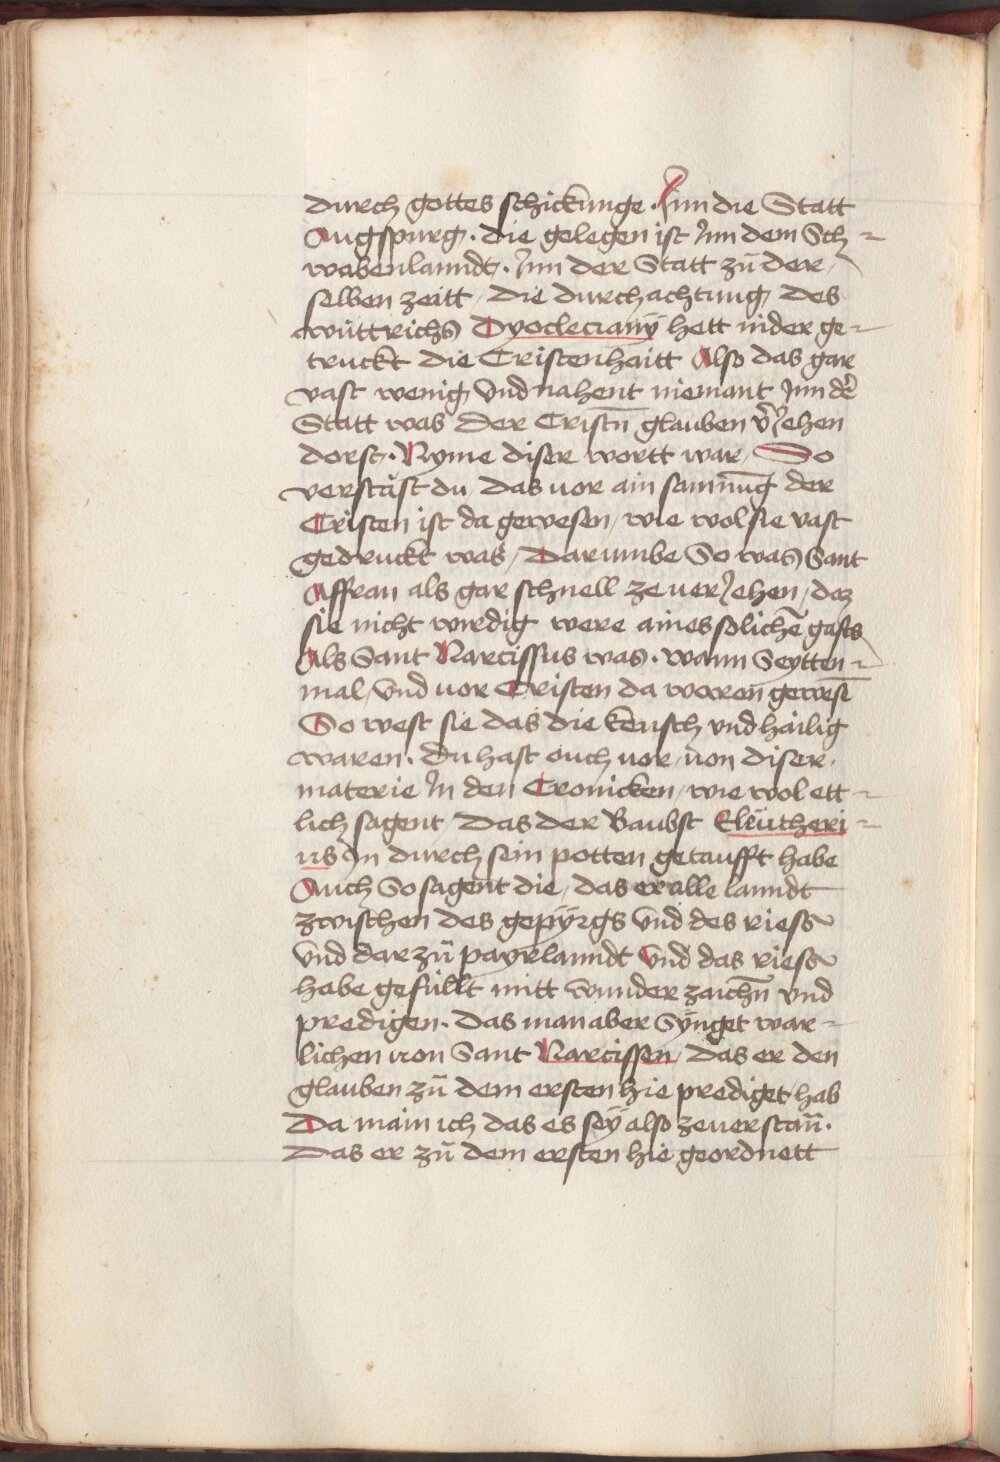 durch gottes schickunge · Jnn die Statt
Augspurg · die gelegen ist Jnn dem Sch-
wabenlanndt · Jnn der Statt zů der
selben zeitt / die durchachtung des
wüttrichs Dyocleciany hett nider ge-
truckt die Cristenhaitt Also das gar
vast wenig vnd nahent niemant Jnn dˀ
Statt was der Cristn̄ glauben vˀJehen
dorst · Nyme diser wortt war / So
verstăst du / das uor ain samnūg der
Cristen ist da gewesen / wie wol sie vast
gedruckt was / Darumbe So was Sant
Affran als gar schnell ze uerJehen / dez
sie nicht wirdig were aines solichē gasts
Als Sant Narcissus was · wann Seytten-
mal / vnd uor Cristen da woren gewesē
So west sie das die keusch vnd hailig
waren · du hast ouch uor / uon diser
materie Jn den Cronicken / wie wol ett-
lich sagent / Das der Baubst Eleutheri-
us Jn durch sein potten getaufft habe
Auch So sagent die / das er alle lanndt
zwischen des gepÿrgs vnd des riess
vnd dar zů payrlanndt vnd das riess
habe gefüllt mitt wunder zaichn̄ vnd
predigen · Das man aber Sÿnget war-
lichen uon Sant Narcissen / das er den
glauben zů dem ersten hie prediget / hab
Da main ich das es seÿ also ze uerstan̄ ·
Das er zů dem ersten hie geordnett